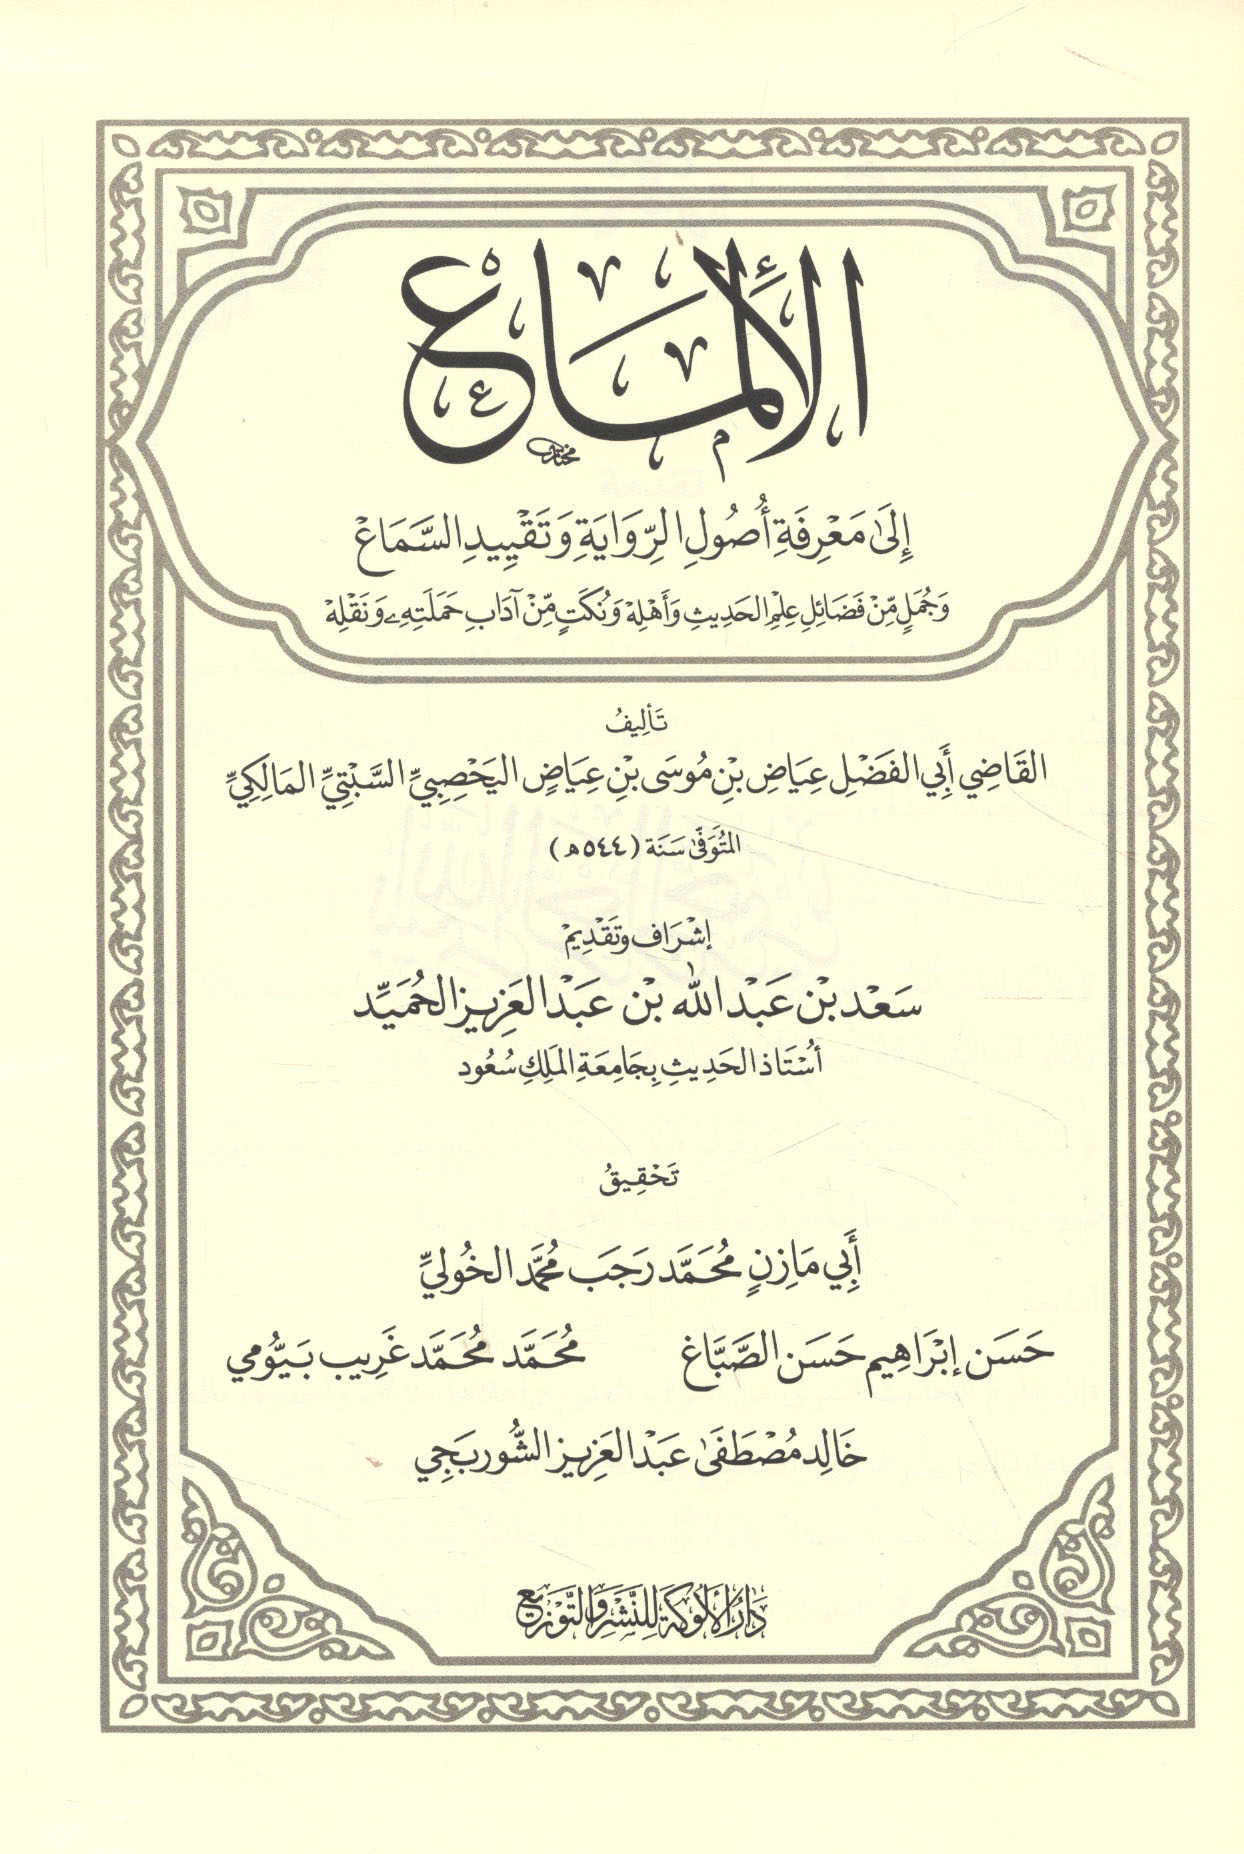 الألماع
مختار
إلى معرفة أصول الرواية وتقييد السماع
وجمل من فضائل علم الحديث وأهله ونكت من آداب حملته ونقله
تأليف
القاضي أبي الفضل عياض بن موسى بن عياض اليحصبي السبتي المالكي
المتوفى سنة (٥٤٤ه)
إشراف وتقديم
سعد بن عبد الله بن عبد العزيز الحميد
أستاذ الحديث بجامعة الملك سعود
تحقيق
أبي مازن محمد رجب محمد الخولي
حسن إبراهيم حسن الصباغ محمد محمد غريب بيومي
خالد مصطفى عبد العزيز الشوربجي
دار الألوكة للنشر والتوزيع